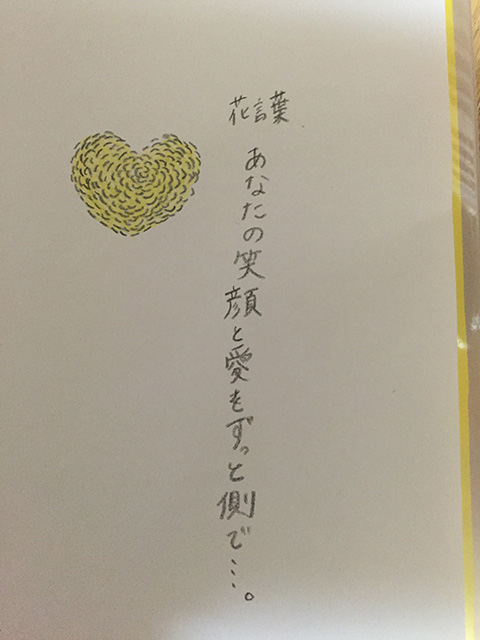 花言葉
あなたの笑顔と愛をずっと側で…。